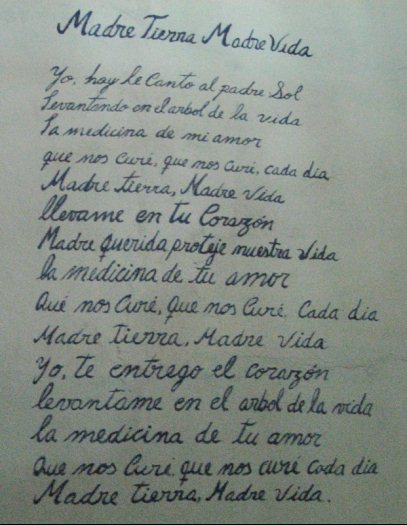 Madre Tierra Madre Vida
Yo, hoy le Canto al padre Sol
Levantando en el arbol de la vida
la medicina de mi amor
que nos Curé, que nos Curé, cada dia
Madre tierra, Madre Vida
llevame en tu Corazón
Madre querida proteje nuestra vida
la medicina de tu amor
Qué nos Curé, Que nos Curé. Cada dia
Madre tierra, Madre vida
Yo, te entrego el corazón
levantame en el arbol de la vida
la medicina de tu amor
Que nos Curé, que nos curé cada dia
Madre tierra, Madre Vida.